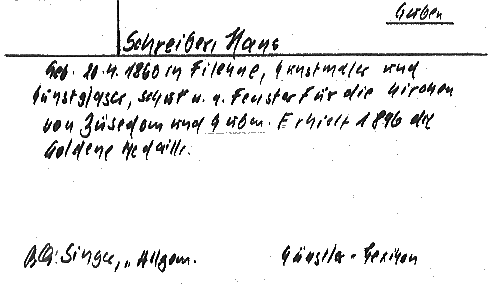 Guben
Schreiber, Hans
Geb. 20.4.1860 in Filehne, Kunstmaler und
Kunstglaser, schuf u. a. Fenster für die Kirchen
von Züsedom und Guben. Erhielt 1896 die
Goldene Medaille.
BQ: Singer, „Allgem. Künstler-Lexikon